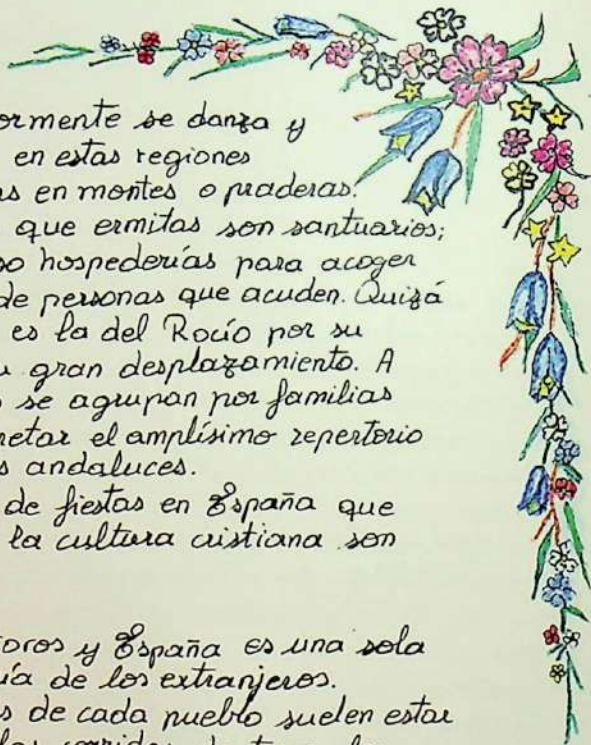 ormente se danza y
en estas regiones
as en montes o praderas.
que ermitas son santuarios;
so hospederías para acoger
de personas que acuden. Quizá
es la del Rocío por su
u gran desplazamiento. A
se agrupan por familias
retar el amplísimo repertorio
s andaluces.
de fiestas en España que
la cultura cristiana son
oros y España es una sola
ía de los extranjeros.
s de cada pueblo suelen estar